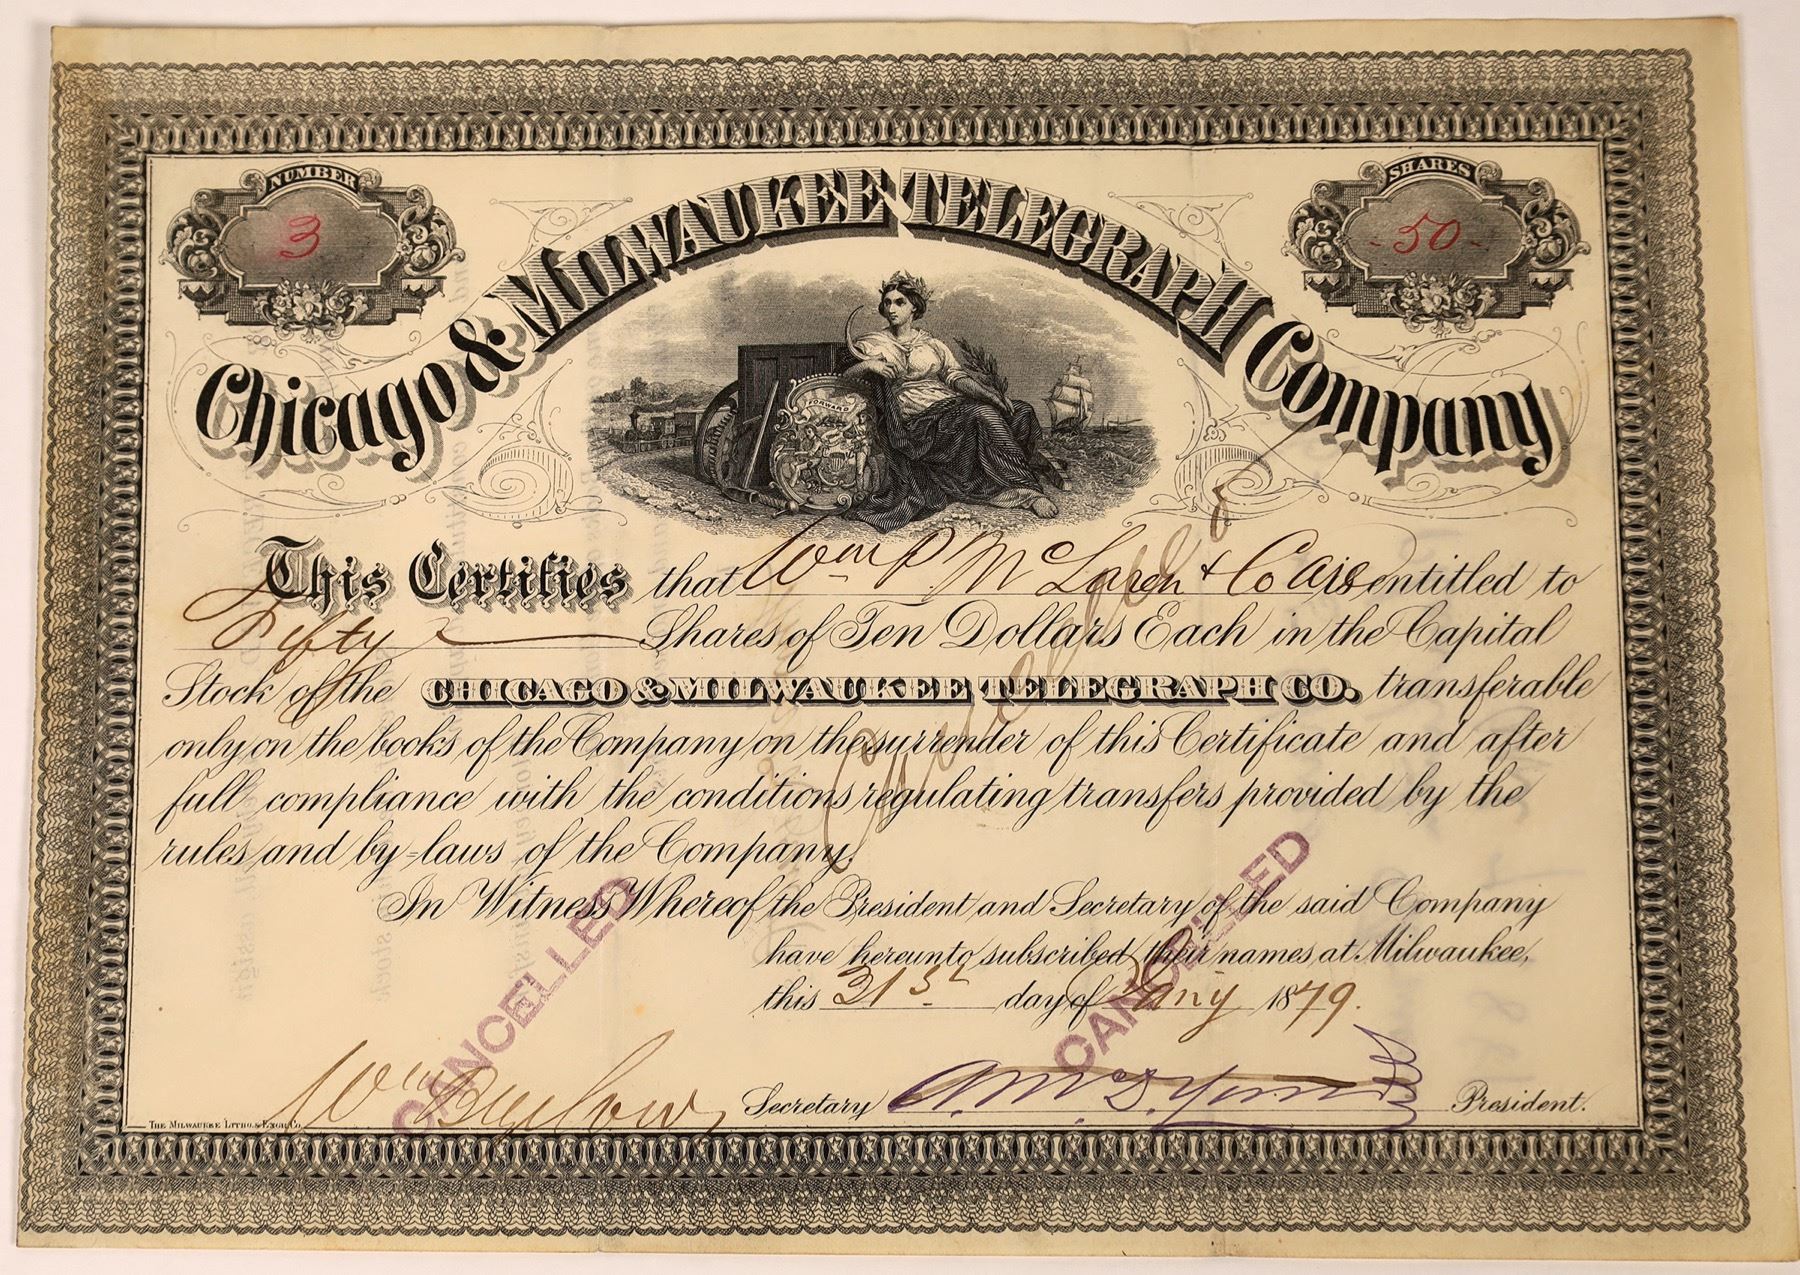 NUMBER
3
SHARES
- 50 -
Chicago & Milwaukee Telegraph Company
FORWARD
This Certifies that Wm P. McLaren & Co are entitled to
Fifty Shares of Ten Dollars Each in the Capital
Stock of the CHICAGO & MILWAUKEE TELEGRAPH CO. transferable
only on the books of the Company on the surrender of this Certificate and after
full compliance with the conditions regulating transfers provided by the
rules and by-laws of the Company.
Cancelled
In Witness Whereof the President and Secretary of the said Company
have hereunto subscribed their names, at Milwaukee,
this 31st day of 1879.
CANCELLED
CANCELLED
Wm Bigelow Secretary President.
The Milwaukee Litho. & Engr. Co.